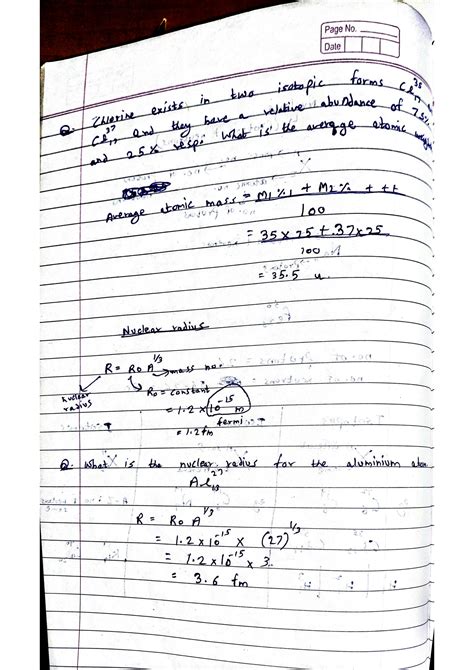 Page No.
Date
Q. Chlorine exists in two isotopic forms Cl 35 17 &
Cl 37 17 and they have a relative abundance of 75%
and 25% resp. What is the average atomic weight
Average atomic mass = M1 %1 + M2 % + ++
100
= 35 x 75 + 37 x 25
100
= 35.5 u
Nuclear radius
R = R0 A^1/3 → mass no.
Nuclear radius
R0 = constant
= 1.2 x 10^-15 m
fermi
= 1.2 fm
Q. What is the nuclear radius for the aluminium atom
Al 27 13
R = R0 A^1/3
= 1.2 x 10^-15 x (27)^1/3
= 1.2 x 10^-15 x 3
= 3.6 fm